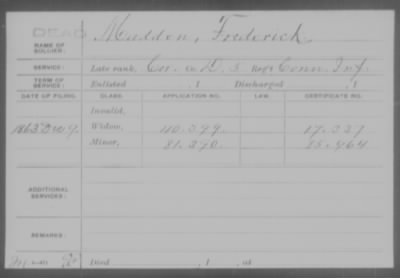 DEAD
NAME OF SOLDIER: Madden, Frederick
SERVICE: Late rank, Co. 3 Reg't Conn. Inf.
TERM OF SERVICE: Enlisted , 1 Discharged , 1
DATE OF FILING. CLASS. APPLICATION NO. LAW. CERTIFICATE NO.
Invalid,
1863 Widow, 110.299 17.327
Minor, 81.290 15.964
ADDITIONAL SERVICES:
REMARKS:
Died , 1 , at